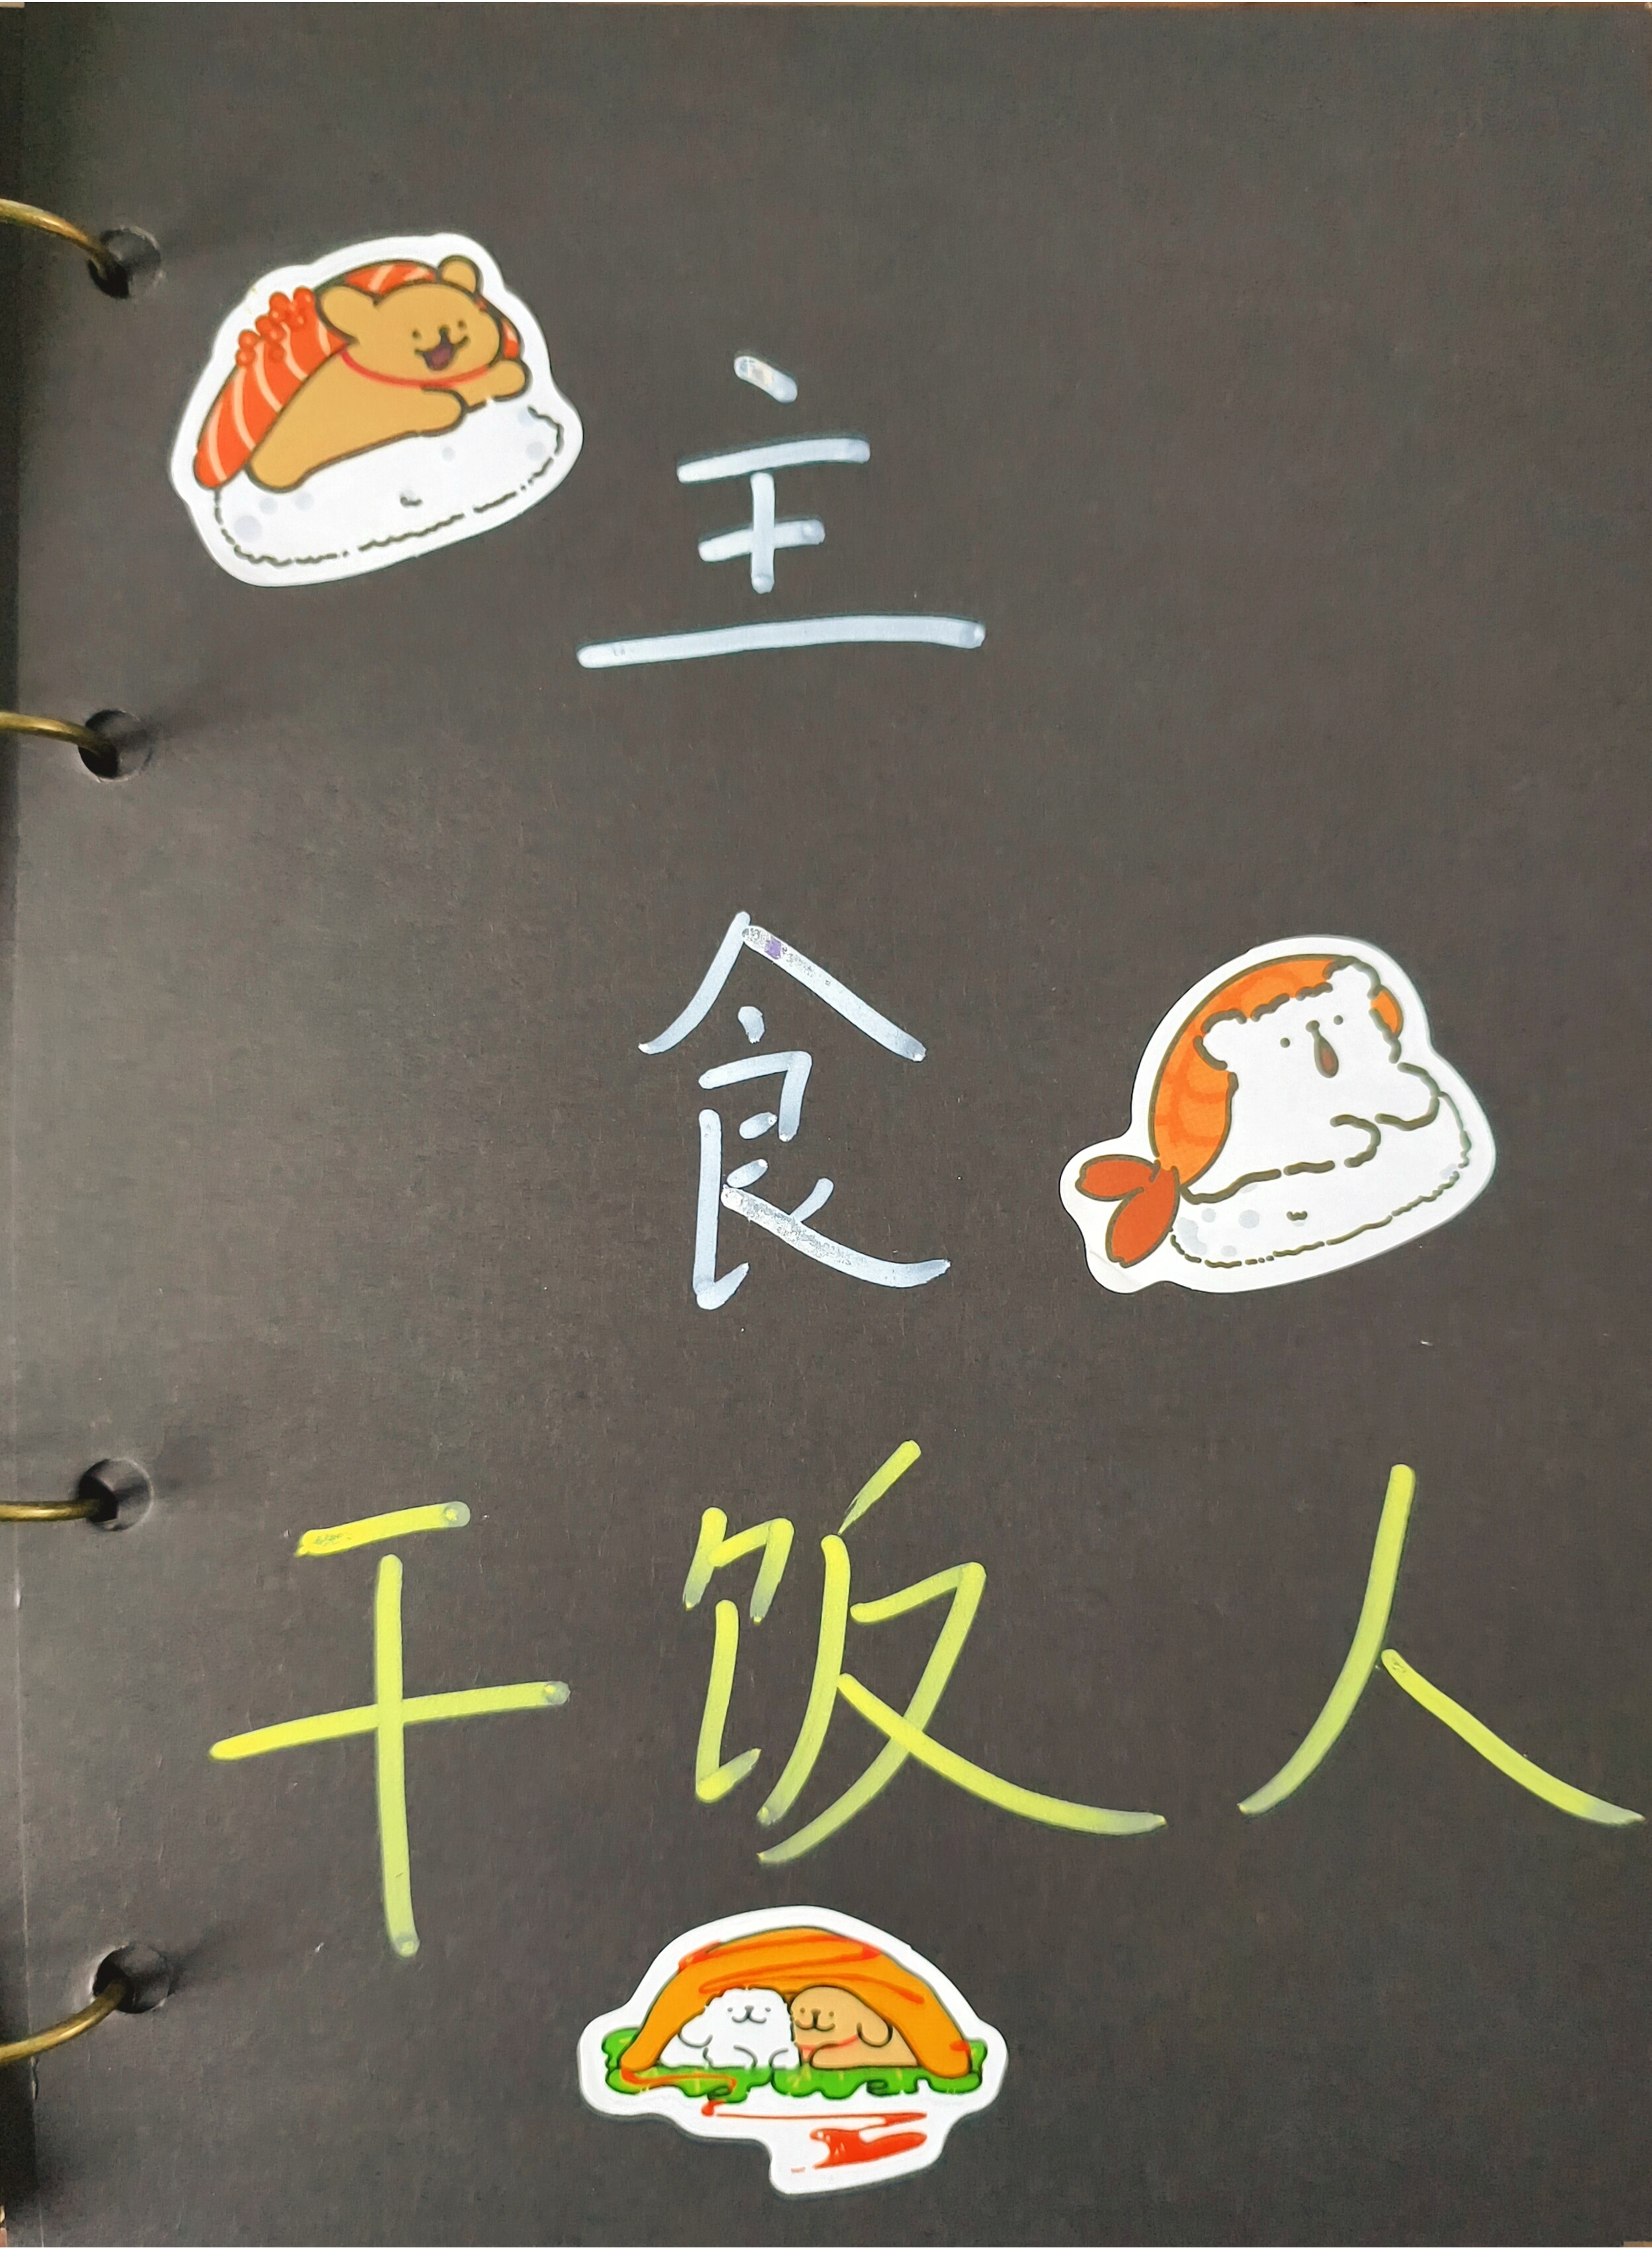 主
食
干饭人